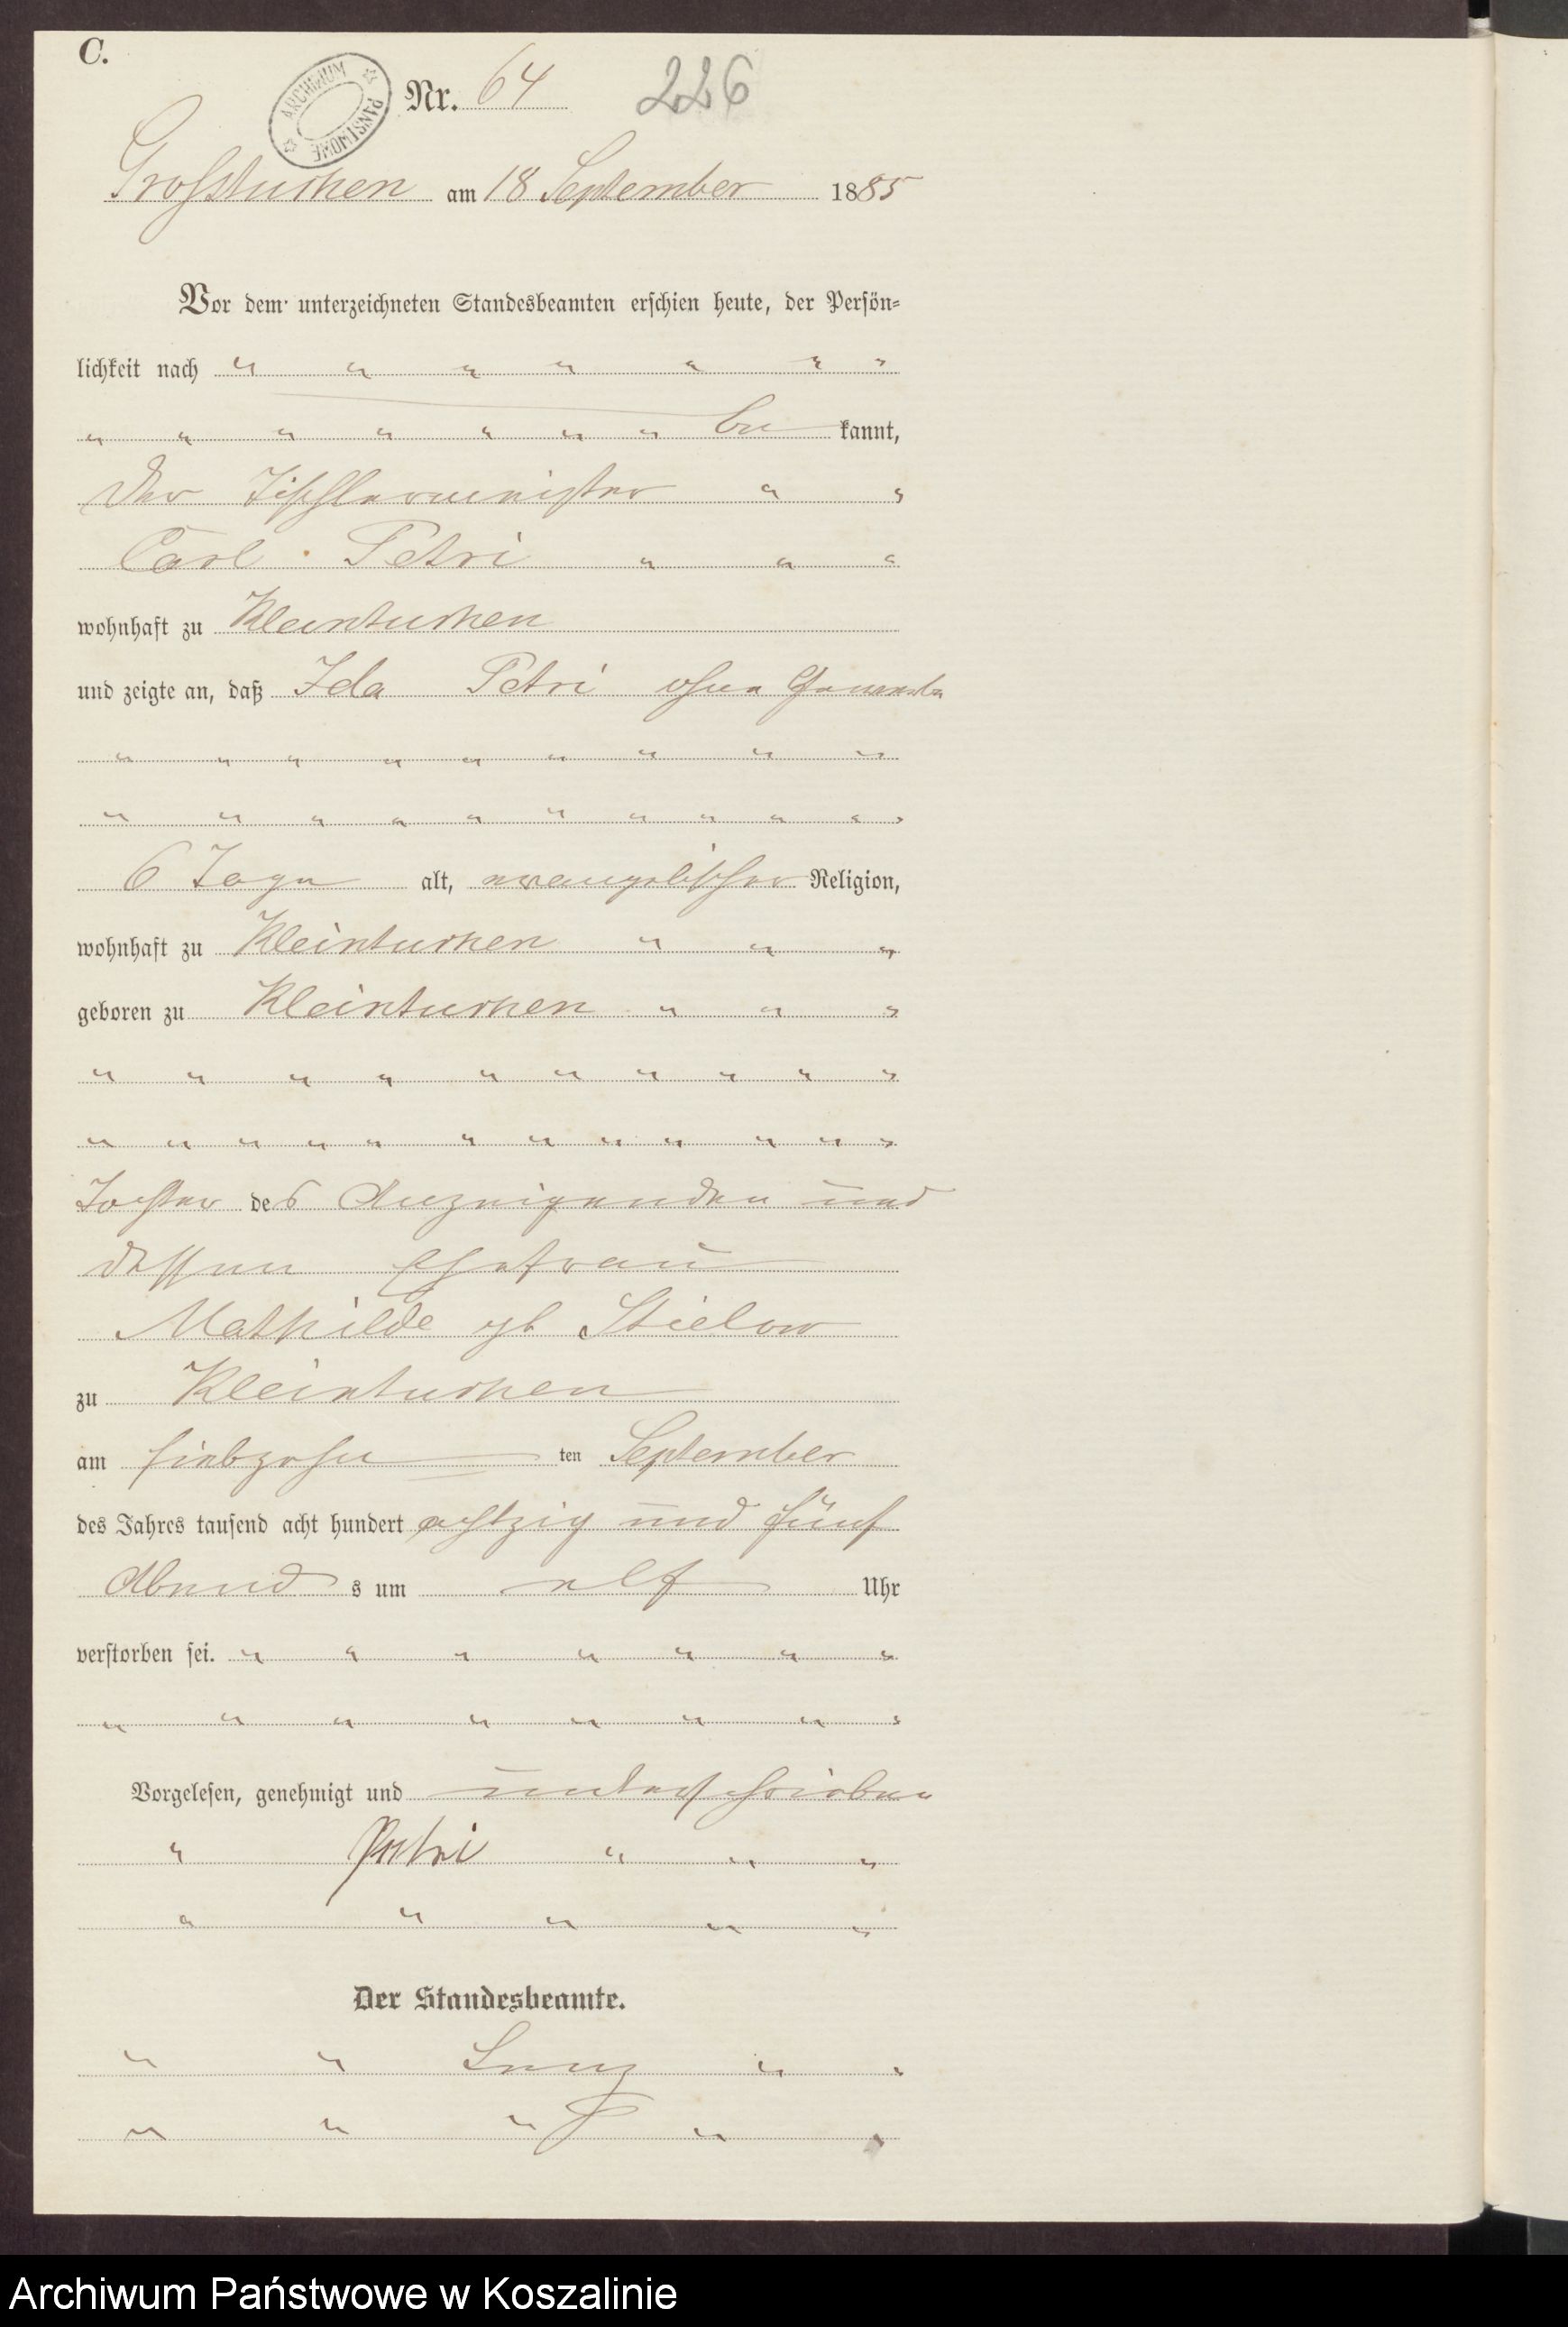 C.
ARCHIWUM PAŃSTWOWE
Nr. 64 226
Großtuchen am 18 September 1885
Vor dem unterzeichneten Standesbeamten erschien heute, der Persön=
lichkeit nach " " " " " " "
" " " " " " " be kannt,
der Tischlermeister " "
Carl Petri " " "
wohnhaft zu Kleintuchen
und zeigte an, daß Ida Petri ohne Gewerbe
" " " " " " " " "
" " " " " " " " " " "
6 Tage alt, evangelischer Religion,
wohnhaft zu Kleintuchen " " "
geboren zu Kleintuchen " " "
" " " " " " " " " "
" " " " " " " " " " " "
Tochter des Anzeigenden und
dessen Ehefrau
Mathilde gb Stielow
zu Kleintuchen
am siebzehn ten September
des Jahres tausend acht hundert achtzig und fünf
Abend s um elf Uhr
verstorben sei. " " " " " " "
" " " " " " " "
Vorgelesen, genehmigt und unterschrieben
" Petri " " "
" " " " "
Der Standesbeamte.
" " " "
" " " " "
Archiwum Państwowe w Koszalinie